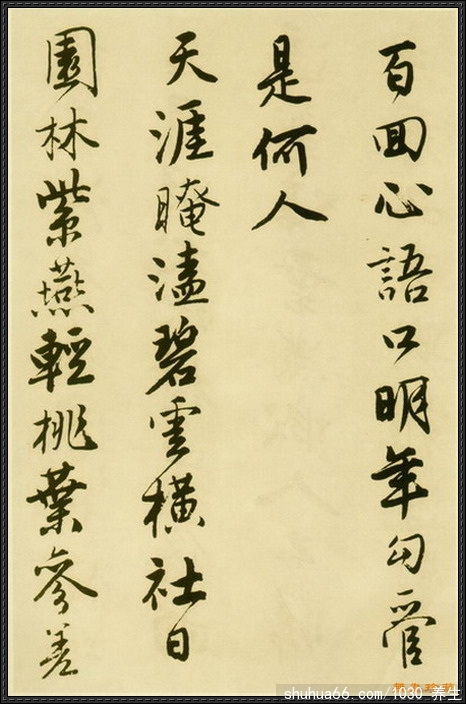 百囬心語口明年勾管
是何人
天涯晻溘碧雲橫社日
園林紫燕輕桃葉參差
shuhua66.com/1030 养生